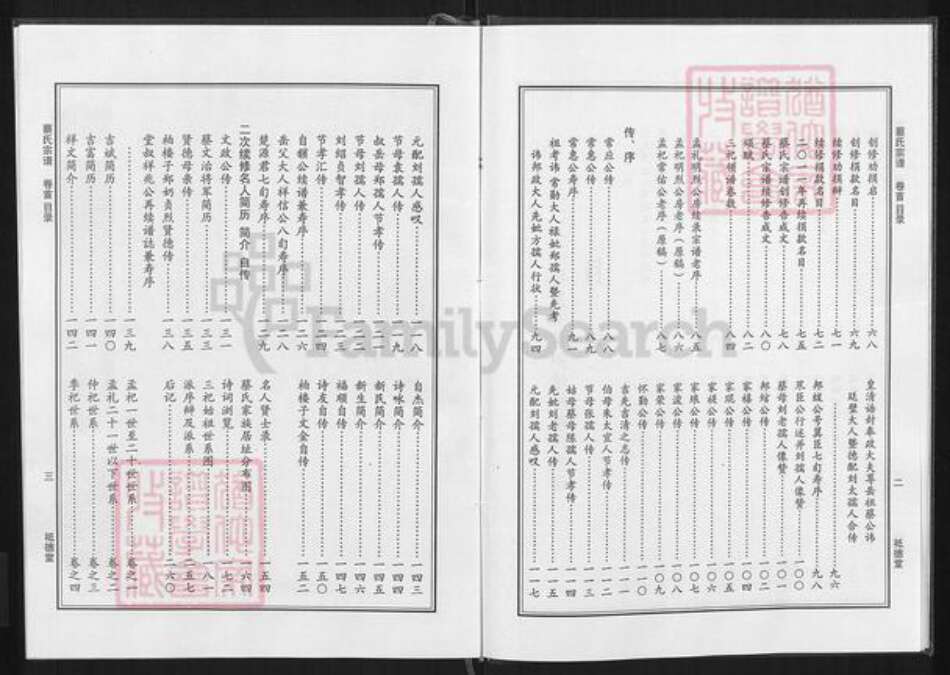 蔡氏宗谱 卷首 目录
创修劝捐启 六八
创修捐款名目 六九
续修劝捐辩 七一
续修捐款名目 七二
二〇一一年再续捐款名目 七五
蔡氏宗谱创修告成文 七八
蔡氏宗谱续修告成文 八〇
颂赋 八二
三祀领谱卷数 八四
孟礼明烈公房续录宗谱老序 八五
孟祀明烈公房老序（原稿） 八六
孟祀常佑公老序（原稿） 八八
传、序
常应公传 八八
常惠公传 八九
常惠公寿序 九一
祖考讳常勋大人禄妣郑孺人暨先考
讳邦政大人先妣方孺人行状 九四
皇清诰封奉政大夫尊岳祖蔡公讳
廷璧大人暨德配刘太孺人合传 九六
邦媛公号翼臣七旬寿序 九八
翼臣公行述并刘孺人像赞 一〇〇
蔡母刘老孺人像赞 一〇一
邦绾公传 一〇二
家禧公传 一〇四
家琨公传 一〇五
家模公传 一〇六
家琅公传 一〇七
家波公传 一〇八
家荣公传 一〇九
怀勤公传 一一〇
吉先吉清之志传 一一一
伯母朱太宜人节孝传 一一二
节母张孺人传 一一三
姑母蔡母陈孺人节孝传 一一四
先妣刘老孺人传 一一五
元配刘孺人感叹 一一七
二
祗德堂
蔡氏宗谱 卷首 目录
元配刘孺人感叹 一一八
节母袁孺人传 一一九
叔岳母郑孺人节孝传 一二一
节母刘孺人传 一二二
刘绍贞智孝传 一二三
节孝汇传 一二四
自翻公续谱兼寿序 一二六
岳父大人祥信公八旬寿序 一二八
楚源君七旬寿序 一二九
二次续修名人简历 简介 自传
文政公传 一三一
蔡文治将军简历 一三三
贤德母亲传 一三五
柏楼子郑奶贞烈贤德传 一三八
堂叔祥兆公再续谱誌兼寿序
一三九
吉斌简历 一四〇
吉富简历 一四一
祥文简介 一四二
自杰简介 一四三
诗咏简介 一四四
新民简介 一四五
新生简介 一四六
福顺自传 一四七
诗友自传 一五〇
柏楼子文金自传 一五二
名人贤士录 一五四
蔡氏家族居址分布图 一六四
诗词浏览 一七二
三祀始祖世系图 一八一
派序辩及派系 二五七
后记 二六〇
孟祀一世至二十世世系 卷之一
孟礼二十一世以下世系 卷之二
仲祀世系 卷之三
季祀世系 卷之四
三
祗德堂
FamilySearch